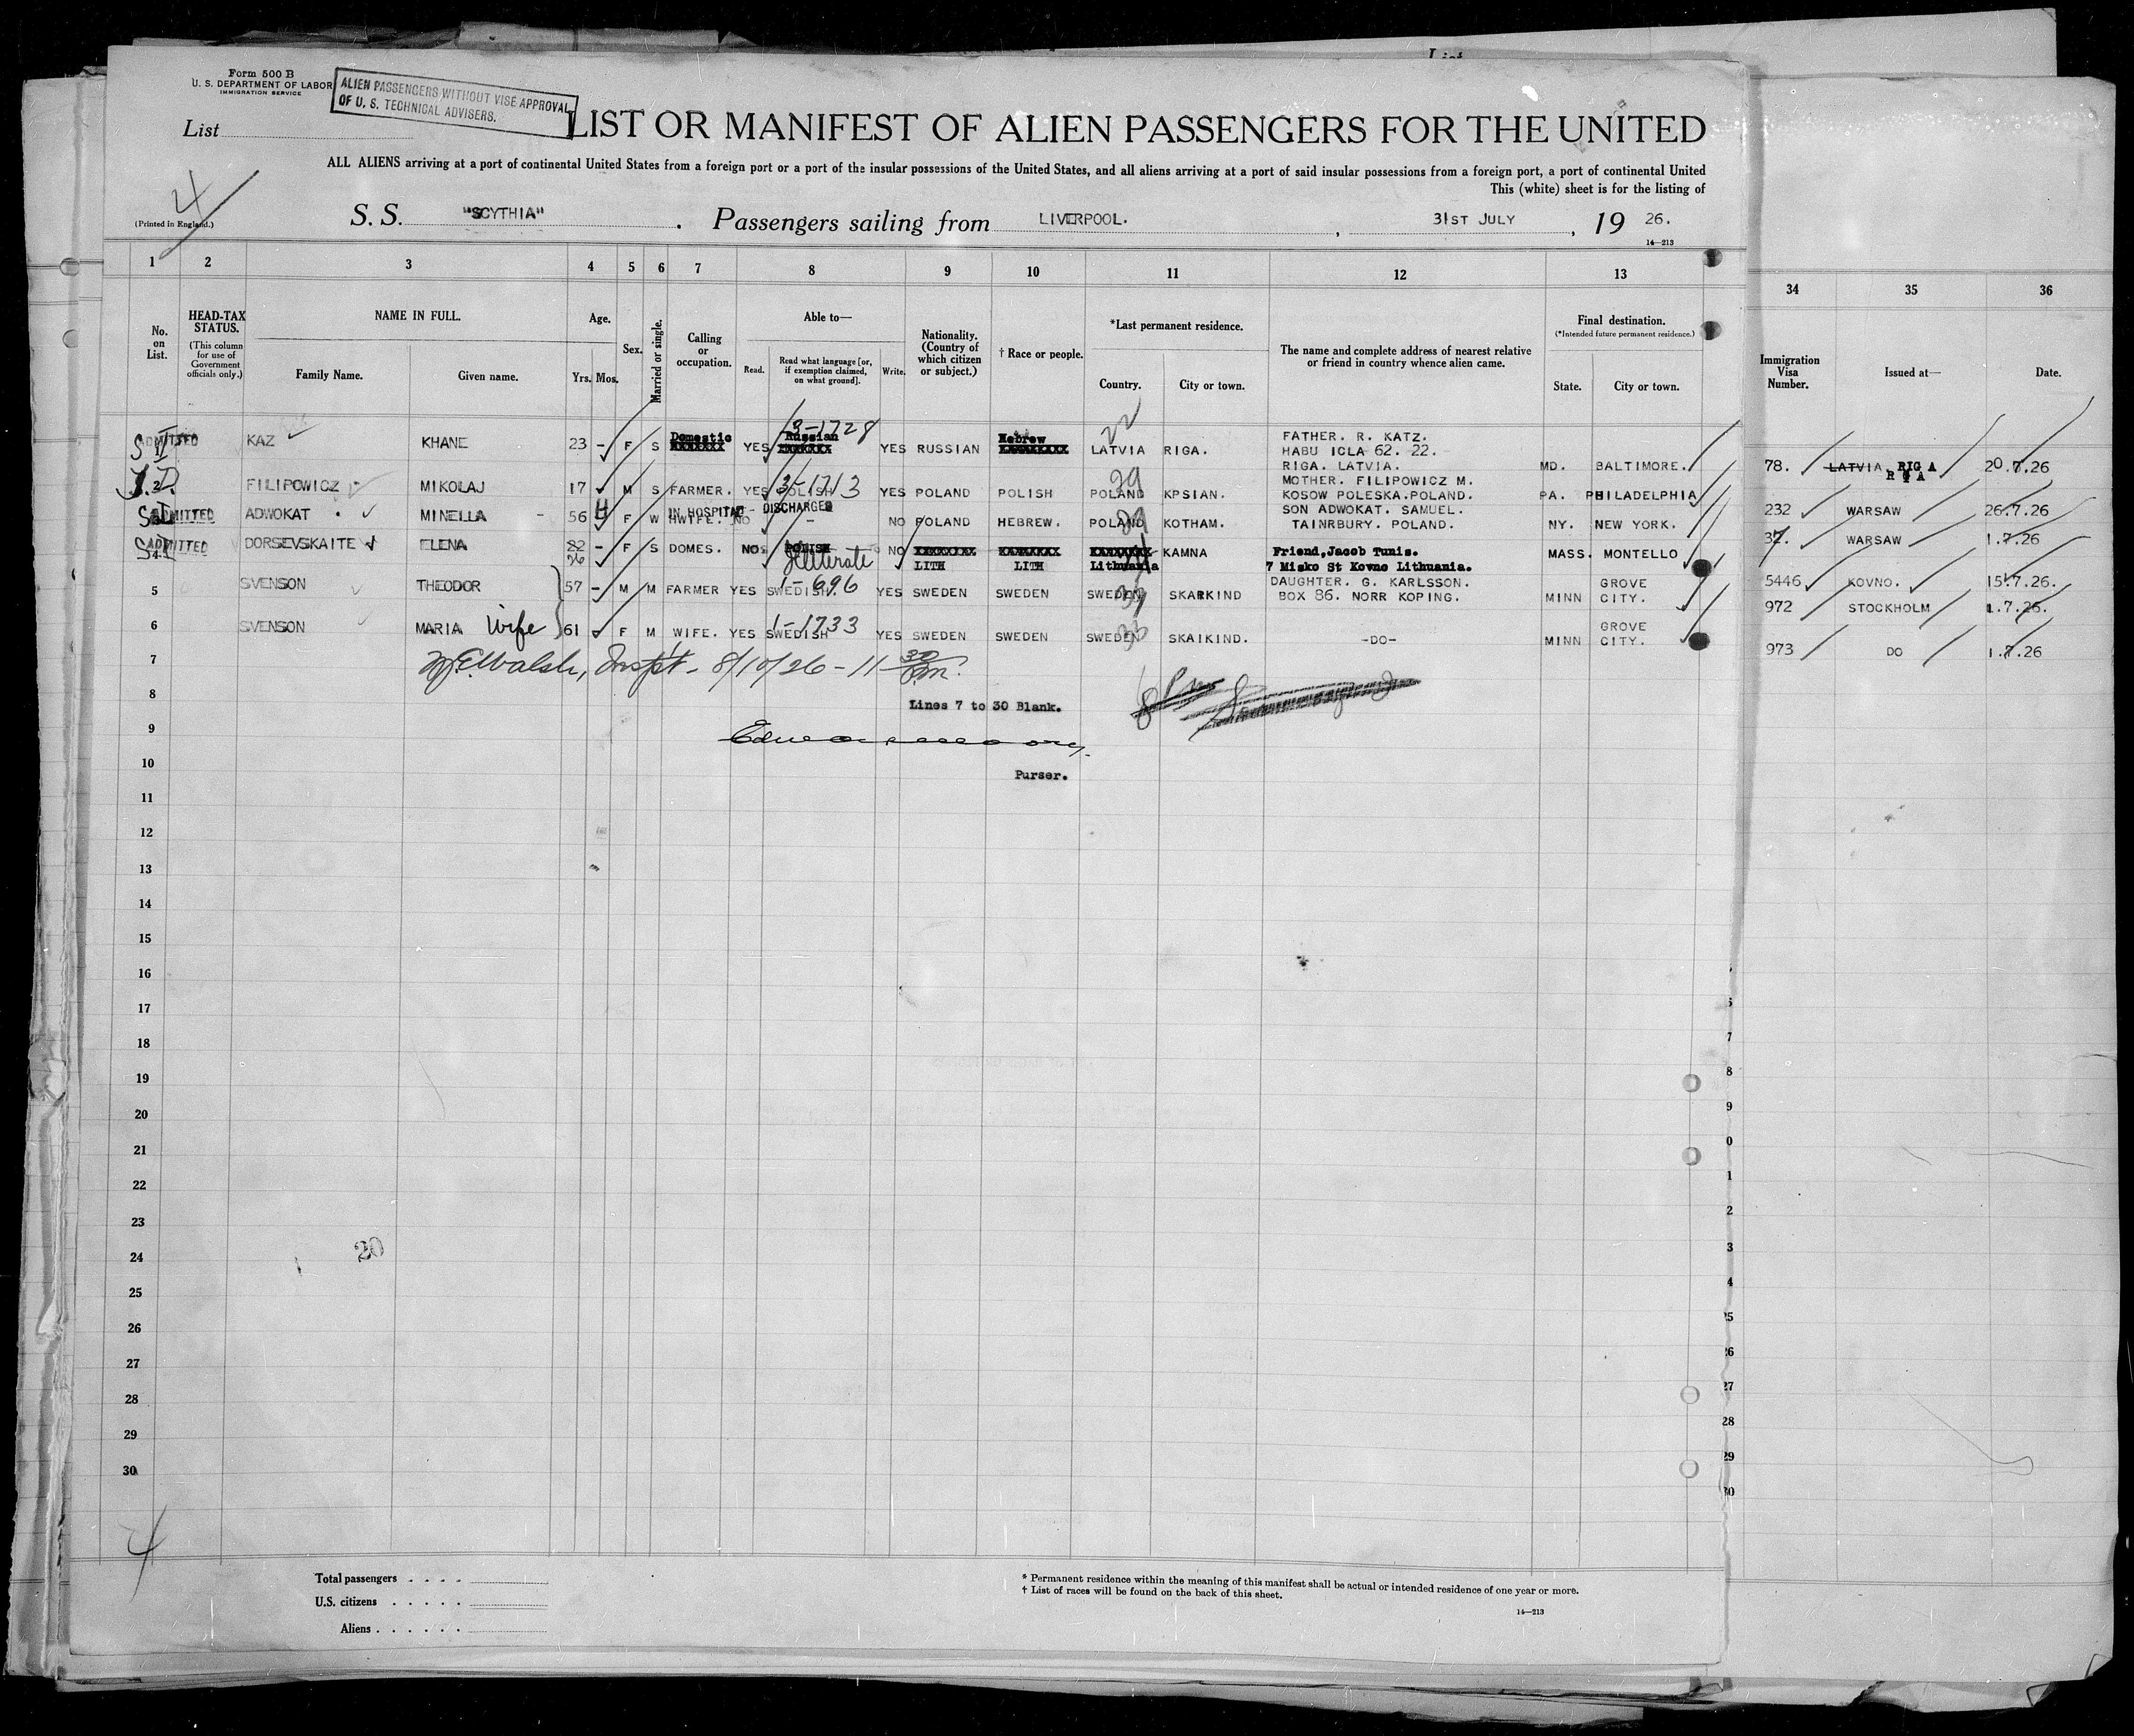 Form 500 B
U. S. DEPARTMENT OF LABOR
IMMIGRATION SERVICE
ALIEN PASSENGERS WITHOUT VISE APPROVAL
OF U. S. TECHNICAL ADVISERS.
List
LIST OR MANIFEST OF ALIEN PASSENGERS FOR THE UNITED
ALL ALIENS arriving at a port of continental United States from a foreign port or a port of the insular possessions of the United States, and all aliens arriving at a port of said insular possessions from a foreign port, a port of continental United
This (white) sheet is for the listing of
4
(Printed in England.)
S. S. "SCYTHIA" . Passengers sailing from LIVERPOOL. , 31ST JULY , 19 26.
14—213
1 2 3 4 5 6 7 8 9 10 11 12 13 34 35 36
No. on List.
HEAD-TAX STATUS.
(This column for use of Government officials only.)
NAME IN FULL.
Family Name. Given name.
Age.
Yrs. Mos.
Sex.
Married or single.
Calling or occupation.
Able to—
Read. Read what language [or, if exemption claimed, on what ground]. Write.
Nationality. (Country of which citizen or subject.)
† Race or people.
*Last permanent residence.
Country. City or town.
The name and complete address of nearest relative or friend in country whence alien came.
Final destination.
(*Intended future permanent residence.)
State. City or town.
Immigration Visa Number.
Issued at—
Date.
3-1728 22
ADMITTED S I 1 KAZ KHANE 23 - F S Domestic YES Russian YES RUSSIAN Hebrew LATVIA RIGA. FATHER. R. KATZ.
HABU ICLA 62. 22.
RIGA. LATVIA. MD. BALTIMORE. 78. LATVIA RIGA 20.7.26
RIGA
2 FILIPOWICZ MIKOLAJ 17 M S FARMER. YES POLISH 3-1713 YES POLAND POLISH POLAND 29 KPSIAN. MOTHER. FILIPOWICZ M.
KOSOW POLESKA.POLAND. PA. PHILADELPHIA 232 WARSAW 26.7.26
IN HOSPITAL - DISCHARGED
ADMITTED ADWOKAT MINELLA - 56 H F W HWIFE. NO - NO POLAND HEBREW. POLAND 29 KOTHAM. SON ADWOKAT. SAMUEL.
TAINRBURY. POLAND. NY. NEW YORK. 37. WARSAW 1.7.26
ADMITTED S I 4 DORSEVSKAITE ELENA 22 - F S DOMES. NO POLISH NO KAMNA Friend,Jacob Tunis. MASS. MONTELLO
26 Illiterate LITH LITH Lithuania 7 Misko St Kovno Lithuania. 5446 KOVNO. 15.7.26.
5 SVENSON THEODOR 57 - M M FARMER YES SWEDISH. 1-696 YES SWEDEN SWEDEN SWEDEN SKARKIND DAUGHTER. G. KARLSSON.
BOX 86. NORR KOPING. MINN GROVE CITY. 972 STOCKHOLM 1.7.26.
6 SVENSON MARIA Wife 61 F M WIFE. YES SWEDISH 1-1733 YES SWEDEN SWEDEN SWEDEN 33 SKAIKIND. -DO- MINN GROVE CITY. 973 DO 1.7.26
7 Walsh, Inspt - 8/10/26 - 11 30
8 Lines 7 to 30 Blank.
9
10 Purser.
11
12
13
14
15
16
17
18
19
20
21
22
23
20
24
25
26
27
28
29
30
4
Total passengers . . . .
U.S. citizens . . . . .
Aliens . . . . . .
* Permanent residence within the meaning of this manifest shall be actual or intended residence of one year or more.
† List of races will be found on the back of this sheet.
14—213